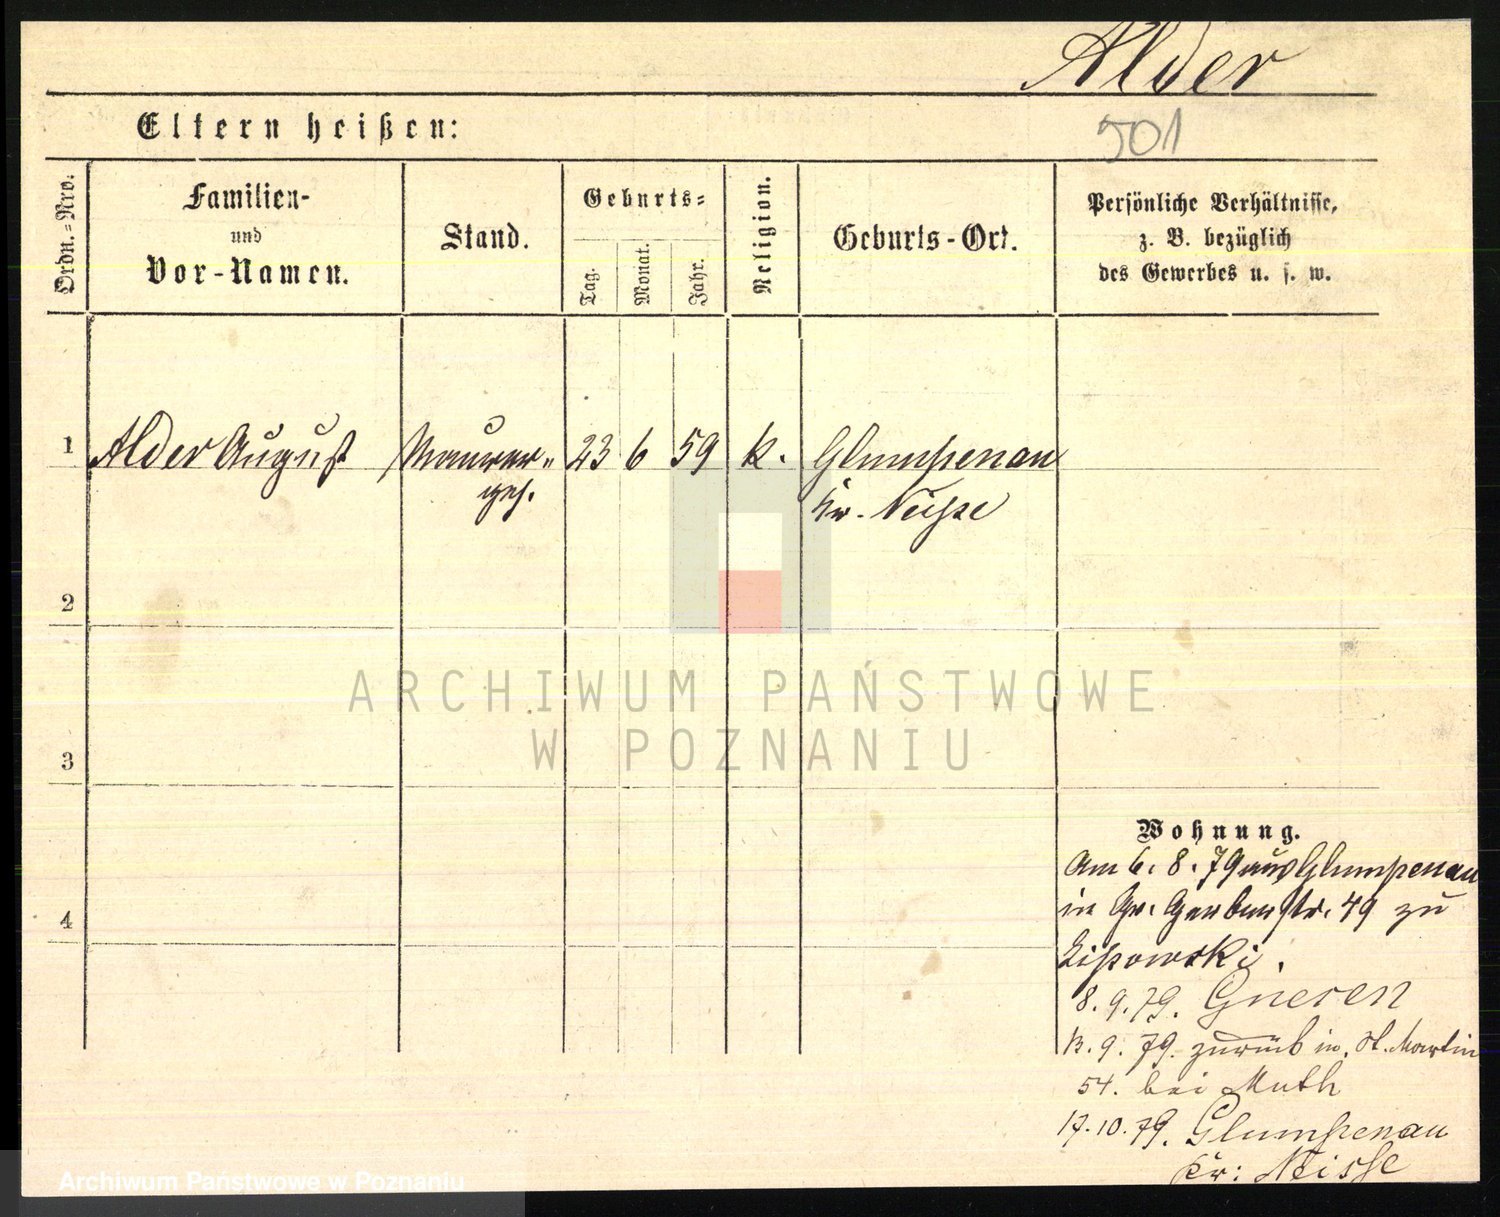 Alder
501
Eltern heißen:
Ordn.=Nro.
Familien-
und
Vor-Namen.
Stand.
Geburts=
Tag.
Monat.
Jahr.
Religion.
Geburts-Ort.
Persönliche Verhältnisse,
z. B. bezüglich
des Gewerbes u. s. w.
1 Alder August Maurer= 23 6 59 k. Glumpenau
ges. Kr. Neiße
2
3
4
ARCHIWUM PAŃSTWOWE
W POZNANIU
Wohnung.
Am 6. 8. 79 aus Glumpenau
in Gr. Gerberstr. 49 zu
8. 9. 79. Gnesen
13. 9. 79. zurück in St. Martin
54. bei Muth
17. 10. 79. Glumpenau
Kr: Neisse
Archiwum Państwowe w Poznaniu